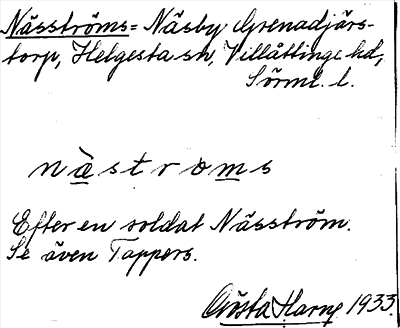 Näsströms = Näsby Grenadjärs-
torp, Helgesta sn, Villåttinge hd,
Sörml. l.
nàstroms
Efter en soldat Näsström.
Se även Tappers.
Gösta Harne 1933.